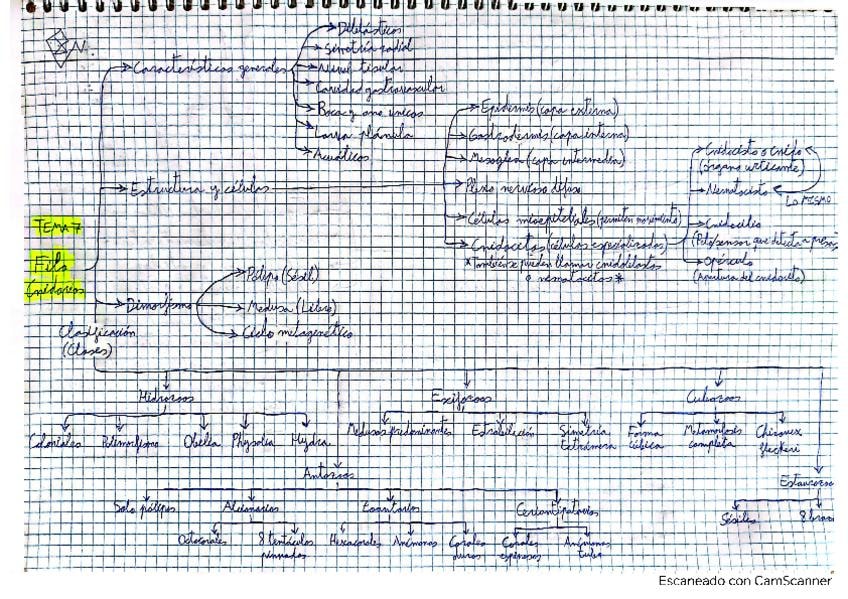 N.
Características generales
Diblásticos
Simetría radial
Nivel tisular
Cavidad gastrovascular
Boca y ano únicos
Larva plánula
Acuáticos
Estructura y células
Epidermis (capa externa)
Gastrodermis (capa interna)
Mesoglea (capa intermedia)
Plexo nervioso difuso
Células mioepiteliales (permiten movimiento)
Cnidocitos (células especializadas)
*También se pueden llamar cnidoblastos
o nematocitos*
Cnidocisto o cnido
(órgano urticante)
Nematocisto
LO MISMO
Cnidocilio
(Pelo sensor que detecta a presas)
Opérculo
(Apertura del cnidocito)
TEMA 7
Filo
Cnidarios
Dimorfismo
Pólipo (Sésil)
Medusa (Libre)
Ciclo metagenético
Clasificación
(Clases)
Hidrozoos
Coloniales
Polimorfismo
Obelia
Physalia
Hydra
Escifozoos
Medusas predominantes
Estrobilación
Simetría
tetrámera
Cubozoos
Forma
cúbica
Metamorfosis
completa
Chironex
fleckeri
Antozoos
Solo pólipos
Alcionarios
Octocorales
8 tentáculos
pinnados
Zoantarios
Hexacorales
Anémonas
Corales
duros
Ceriantipatarios
Corales
espinosos
Anémonas
tubo
Estaurozoos
Sésiles
8 brazos
Escaneado con CamScanner